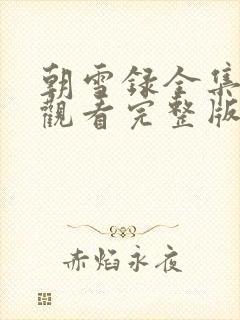 朝雪録全集
觀看完整版
赤焰永夜